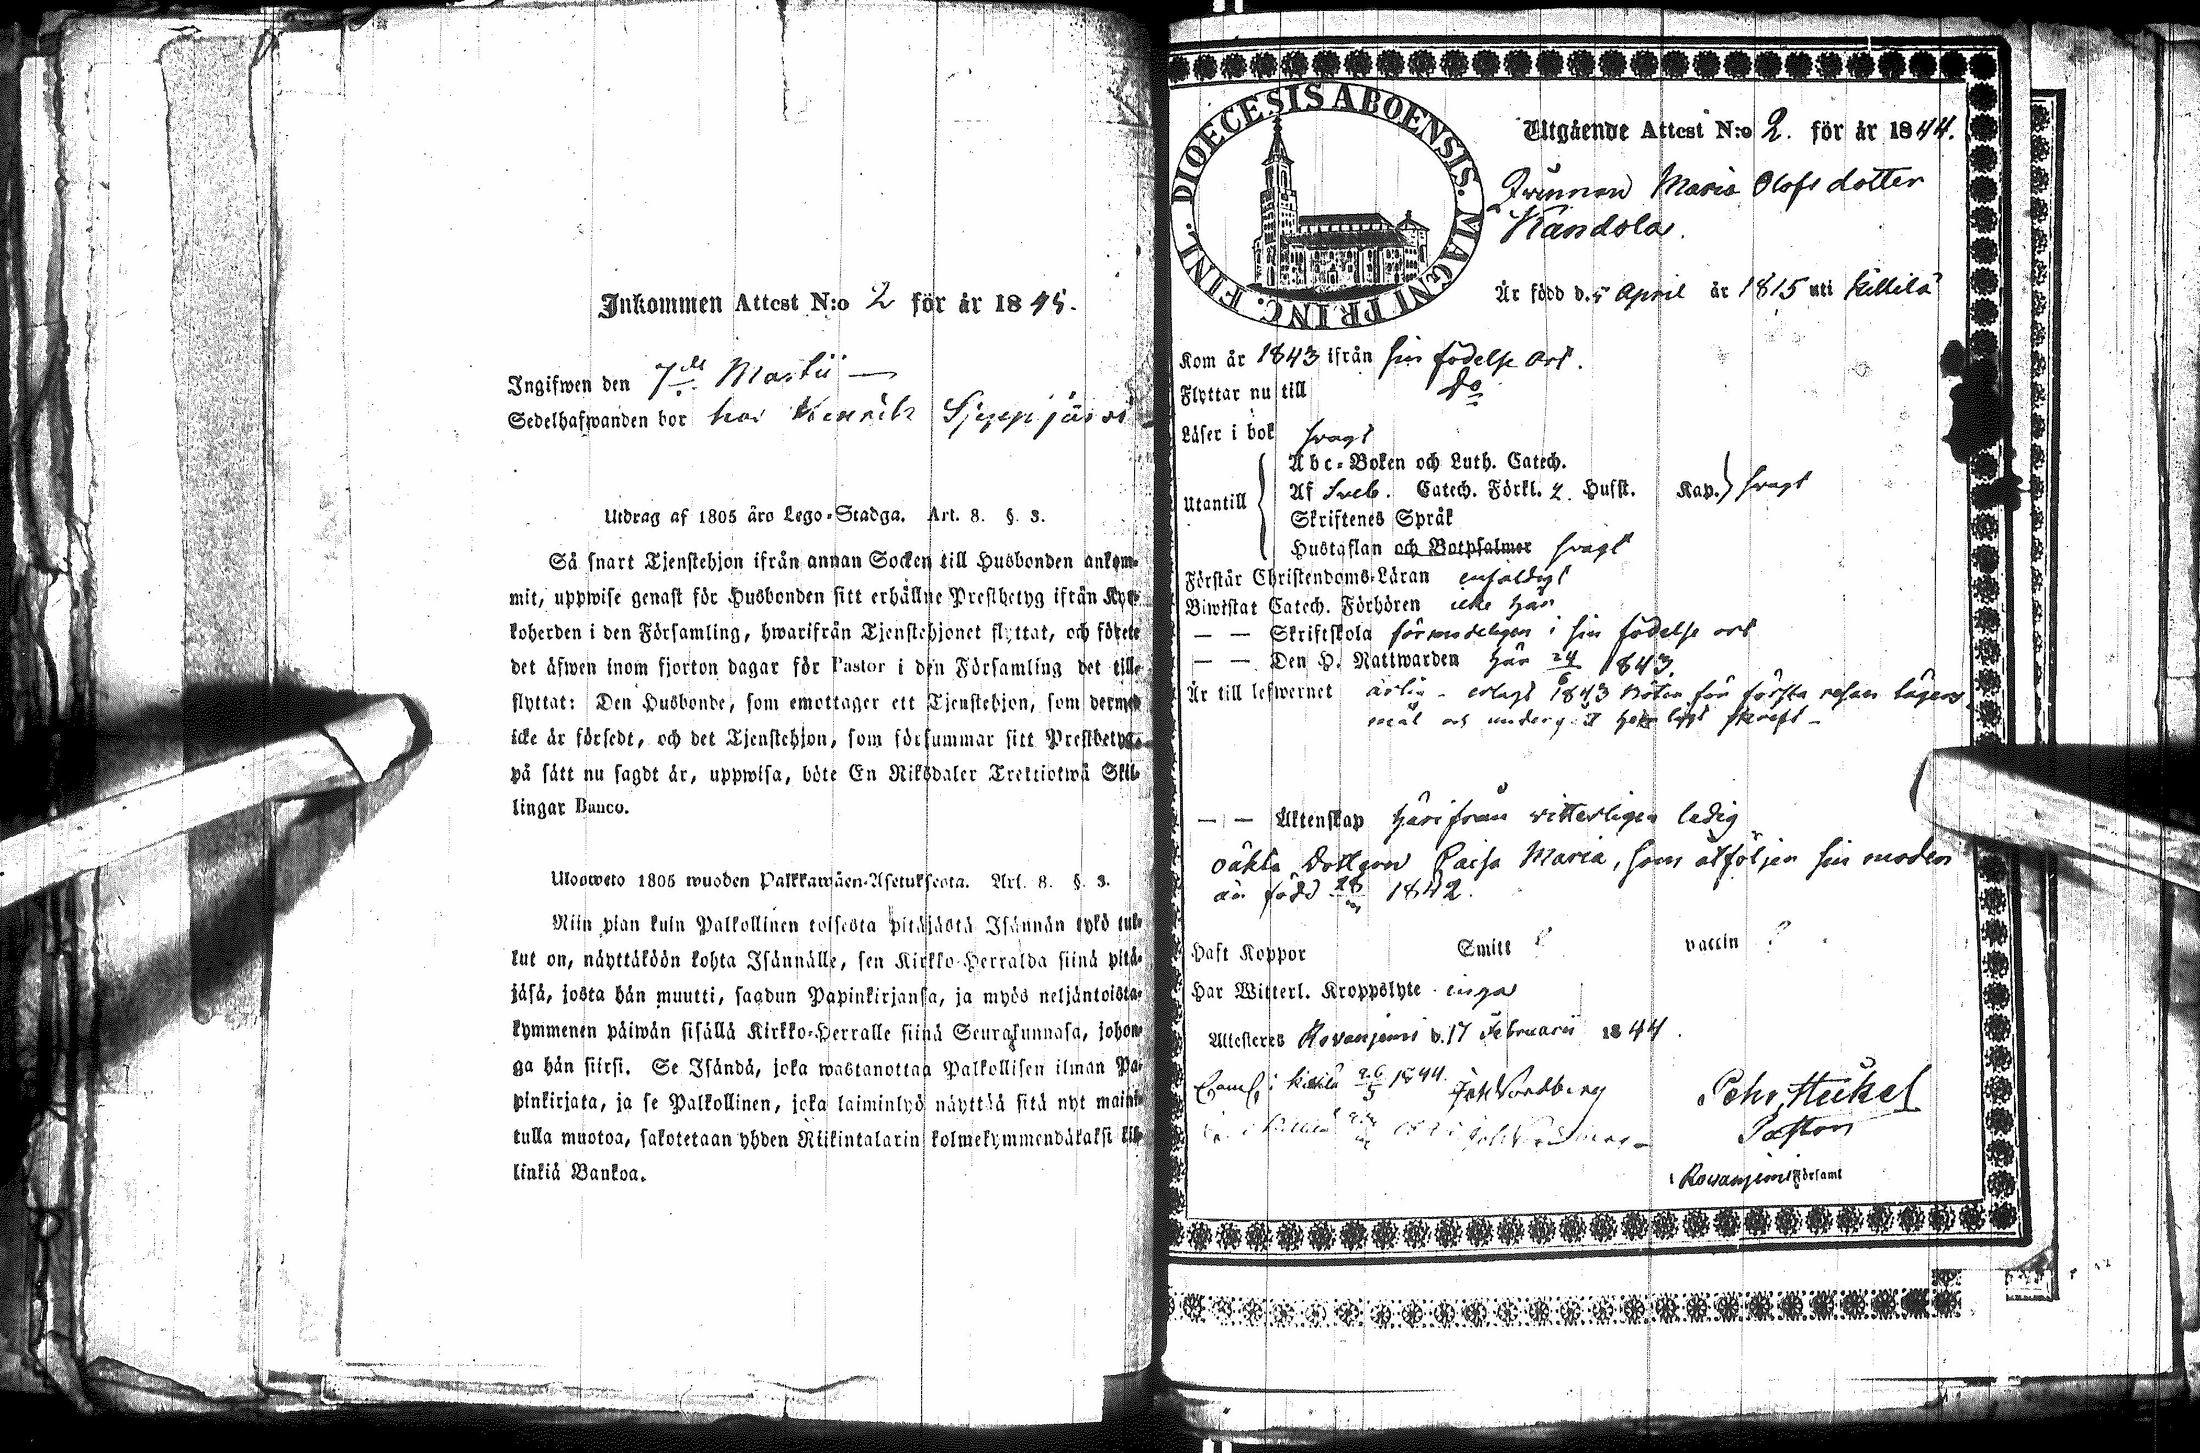 Inkommen Attest N:o 2 för år 1845.
Ingifwen den 7de Martii —
Sedelhafwanden bor hos Henrik
Utdrag af 1805 års Lego-Stadga. Art. 8. §. 3.
Så snart Tjenstehjon ifrån annan Socken till Husbonden ankom-
mit, uppwise genast för Husbonden sitt erhållne Prestbetyg ifrån Kyr-
koherden i den Församling, hwarifrån Tjenstehjonet flyttat, och förete
det äfwen inom fjorton dagar för Pastor i den Församling det till-
flyttat: Den Husbonde, som emottager ett Tjenstehjon, som dermed
icke är försedt, och det Tjenstehjon, som försummar sitt Prestbetyg,
på sätt nu sagdt är, uppwisa, böte En Riksdaler Trettiotwå Skil-
lingar Banco.
Ulosweto 1805 wuoden Palkkawäen-Asetuksesta. Art. 8. §. 3.
Niin pian kuin Palkollinen toisesta pitäjästä Isännän tykö tul-
lut on, näyttäköön kohta Isännälle, sen Kirkko-Herralda siinä pitä-
jäsä, josta hän muutti, saadun Papinkirjansa, ja myös neljäntoista-
kymmenen päiwän sisällä Kirkko-Herralle siinä Seurakunnasa, johon-
ga hän siirsi. Se Isändä, joka wastanottaa Palkollisen ilman Pa-
pinkirjata, ja se Palkollinen, joka laiminlyö näyttää sitä nyt maini-
tulla muotoa, sakotetaan yhden Riikintalarin kolmekymmendäkaksi kil-
linkiä Bankoa.
DIOECESIS ABOENSIS. MAGNI PRINC. FINL.
Utgående Attest N:o 2. för år 1844.
Qvinnan Maria Olofsdotter
Kandola.
Är född d. 5 April år 1815 uti Kittilä
Kom år 1843 ifrån sin födelse ort.
Flyttar nu till Do
Läser i bok svagt
Utantill
Abc-Boken och Luth. Catech.
Af Sveb. Catech. Förkl. 2. Husst. Kap. svagt
Skriftenes Språk
Hustaflan och Botpsalmer svagt
Förstår Christendoms-Läran enfaldigt
Biwistat Catech. Förhören icke här
— — Skriftskola förmodeligen i sin födelse ort
— — Den H. Nattwarden här 24/6 1843.
Är till lefwernet ärlig - erlagt 1843 böter för första resan lägers
mål och undergått hemligt skrift -
— — Äktenskap härifrån vitterligen ledig
oäkta Dottren Caisa Maria, som åtföljer sin moder
är född 28 1842.
Haft Koppor Smitt ? vaccin ?
Har Witterl. Kroppslyte inga
Attesteras Rovaniemi d. 17 Februarii 1844.
i Kittilä 26/5 1844. Joh Nordberg
Pehr
Pastor
i Rovaniemi Församl